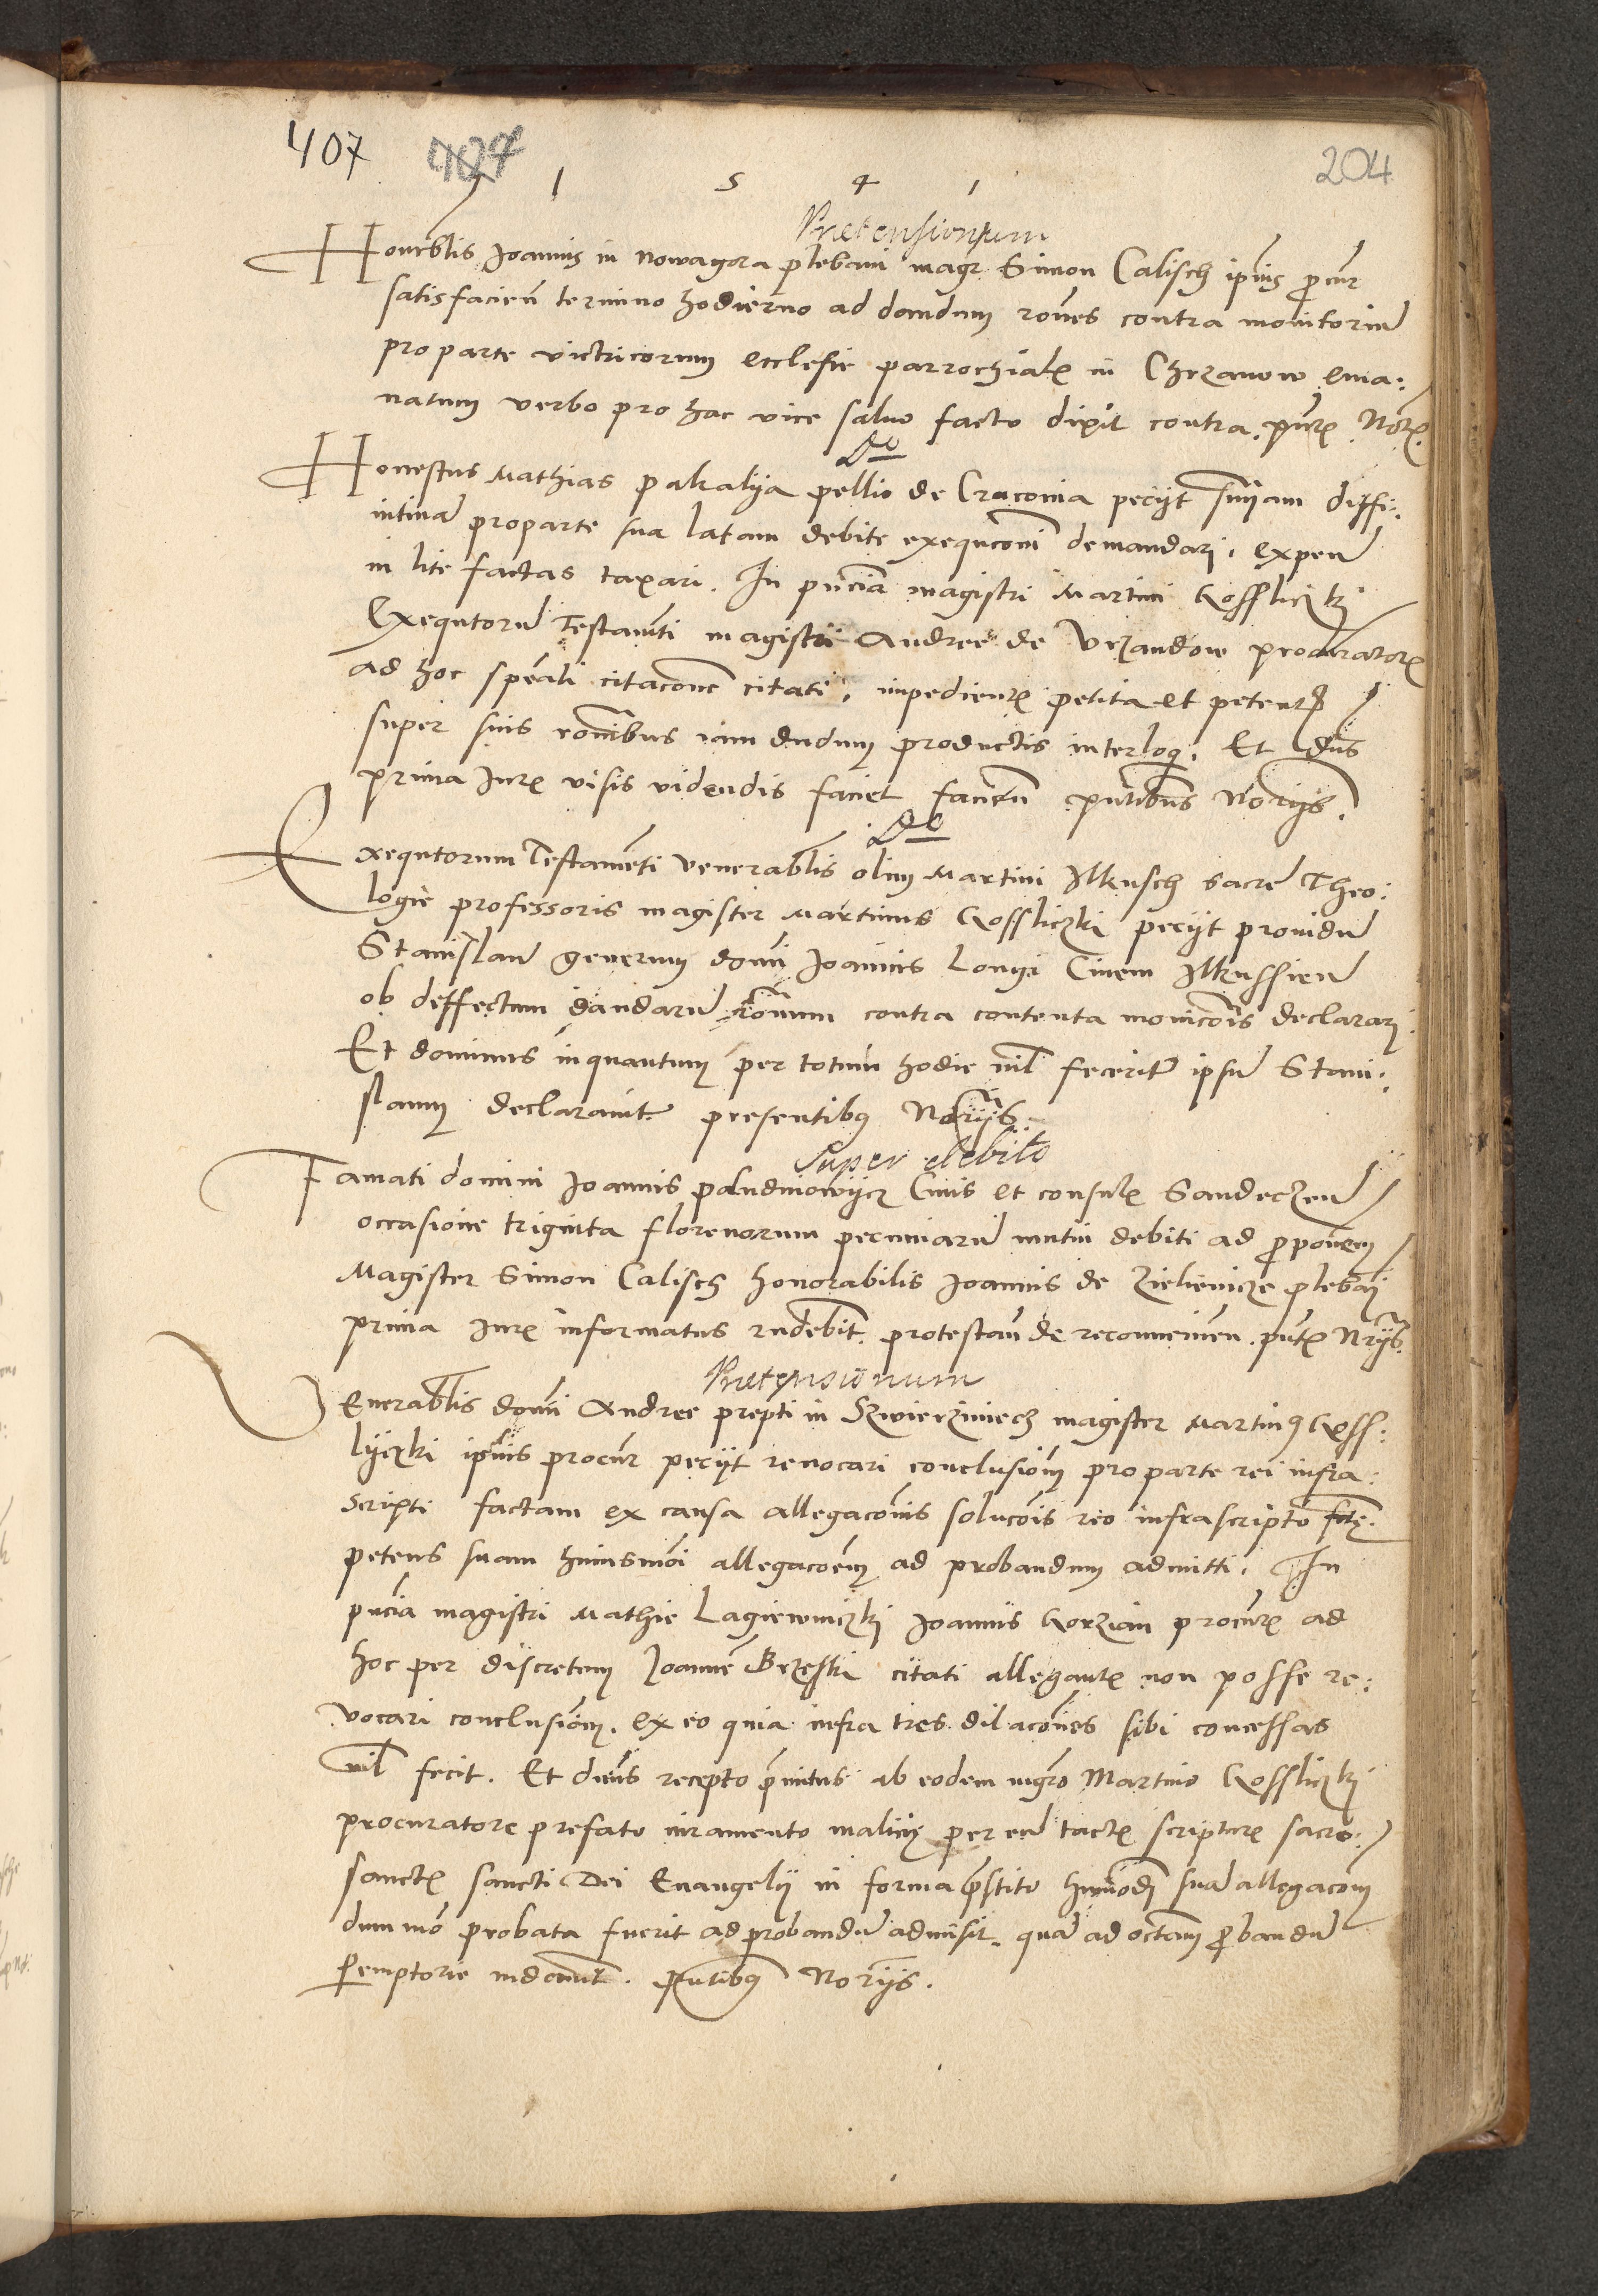 407 204
1 5 4 1
Pretensionum
Honorblis Joannis in Nowagora plebani magr Simon Calisch ipius procur
satisfacien termino hodierno ad dandum rones contra monitoriu
pro parte victricorum ecclesie parrochialis in Chrzanow ema:
natum verbo pro hac vice saluo facto dixit contra. pntibus Notrs.
De
Honestus Mathias pakalya pellio de Cracouia petijt sniam diffi:
nitiua pro parte sua latam debite exequcioni demandari, expen
in lite factas taxari. In pncia magistri Martini Kossliczki
Exequtoru Testamti magistri Andree de Vrzandow procuratoris
ad hoc speali citacione citati, impedientis petita et petentis
super suis ronibus iam dudum productis interloqui. Et dns
prima Juris visis videndis faciet facien pntibus Norijs.
De
Exequtorum Testamenti venerablis olim Martini Ilkusch sacre Theo:
logie professoris magister Martinus Kossliczki petijt prouidu
Stanislau generum domi Joannis Longi Ciuem Ilkussien
ob deffectum dandaru ronum contra contenta monicois declarari
Et dominus inquantum per totum hodie nil fecerit ipsu Stani:
slaum declarauit presentibus Norijs.
Super debito
Famati domini Joannis paludniowijcz Ciuis et consulis Sandeczen
occasione triginta florenorum pecuniaru mutui debiti ad proponem
Magister Simon Calisch honorabilis Joannis de Zielienicze plebani
prima Juris informatus rndebit. protestan de reconuencion. pntis Nrijs.
Pretensionum
Venerablis domi Andree prepti in Szwierziniecz magister Martinus Koss:
lyczki ipius procur petijt reuocari conclusionem pro parte rei infra:
scripti factam ex causa allegaconis solucois reo infrascripto
petens suam huiusmoi allegacoem ad probandum admitti. In
pncia magistri Mathie Lagiewniczki Joannis Korzian procuris ad
hoc per discretum Joannem Brzeski citati allegantis non posse re:
vocari conclusionem. ex eo quia infra tres dilacones sibi concessas
nil fecit. Et dominus recepto primitus ab eodem mgro Martino Kossliczki
procuratore prefato iuramento malicie per eu tactis scripturis sacro:
sanctis sancti Dei Euangelij in forma prestito huiusmodi sua allegacom
dummo probata fuerit ad probandu admisit. qua ad octauam probandu
peremptorie induxit. pntibus Norijs.